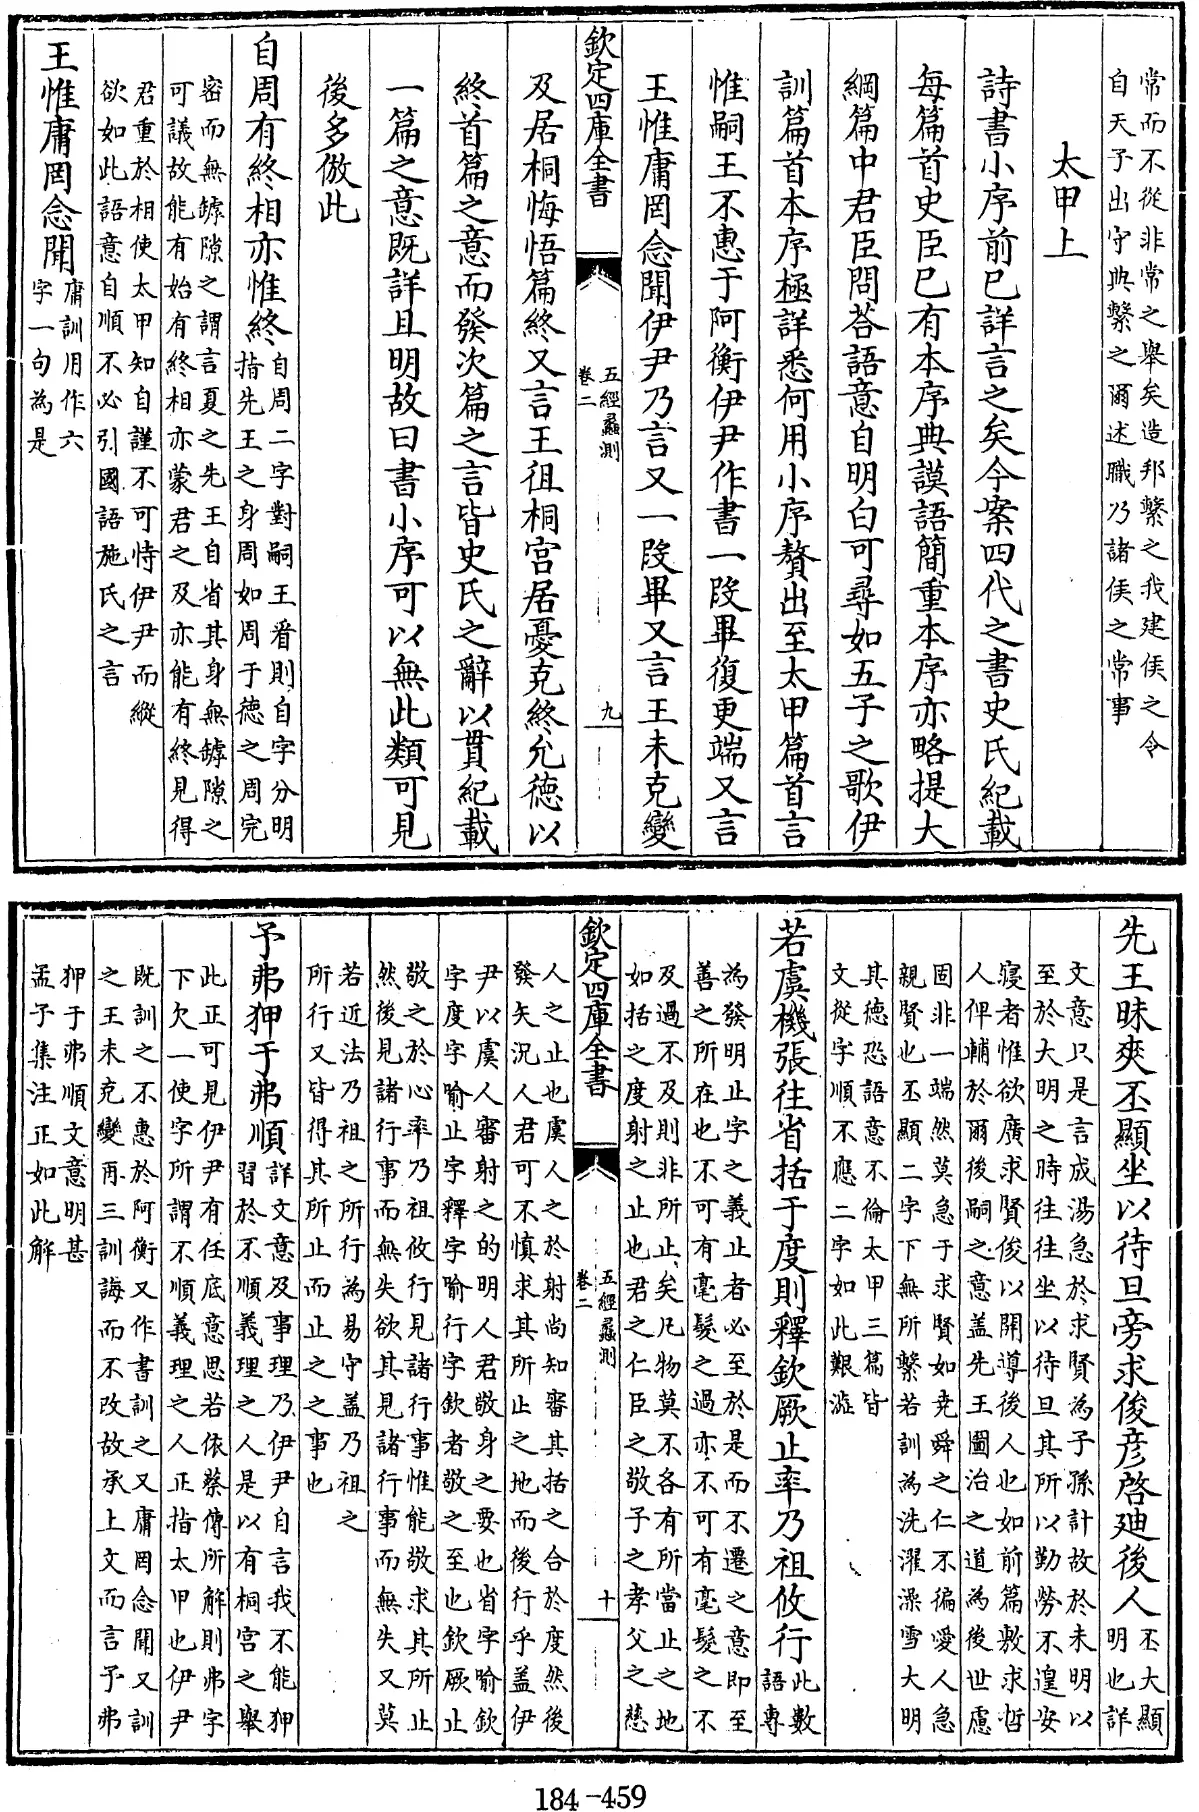 常而不從非常之舉矣造邦繫之我建侯之令
自天子出守典繫之爾述職乃諸侯之常事
太甲上
詩書小序前已詳言之矣今案四代之書史氏紀載
每篇首史臣已有本序典謨語簡重本序亦略提大
綱篇中君臣問荅語意自明白可尋如五子之歌伊
訓篇首本序極詳悉何用小序贅出至太甲篇首言
惟嗣王不惠于阿衡伊尹作書一段畢復更端又言
王惟庸罔念聞伊尹乃言又一段畢又言王未克變
欽定四庫全書
五經蠡測
卷二
九
及居桐悔悟篇終又言王徂桐宮居憂克終允德以
終首篇之意而發次篇之言皆史氏之辭以貫紀載
一篇之意既詳且明故曰書小序可以無此類可見
後多倣此
自周有終相亦惟終
自周二字對嗣王看則自字分明
指先王之身周如周于德之周完
密而無罅隙之謂言夏之先王自省其身無罅隙之
可議故能有始有終相亦蒙君之及亦能有終見得
君重於相使太甲知自謹不可恃伊尹而縱
欲如此語意自順不必引國語施氏之言
王惟庸罔念聞
庸訓用作六
字一句為是
先王昧爽丕顯坐以待旦旁求俊彥啓廸後人
丕大顯
明也詳
文意只是言成湯急於求賢為子孫計故於未明以
至於大明之時往往坐以待旦其所以勤勞不遑安
寢者惟欲廣求賢俊以開導後人也如前篇敷求哲
人俾輔於爾後嗣之意盖先王圖治之道為後世慮
固非一端然莫急于求賢如堯舜之仁不徧愛人急
親賢也丕顯二字下無所繫若訓為洗濯澡雪大明
其德恐語意不倫太甲三篇皆
文從字順不應二字如此艱澁
若虞機張往省括于度則釋欽厥止率乃祖攸行
此數
語專
為發明止字之義止者必至於是而不遷之意即至
善之所在也不可有毫髮之過亦不可有毫髮之不
及過不及則非所止矣凡物莫不各有所當止之地
如括之度射之止也君之仁臣之敬子之孝父之慈
欽定四庫全書
五經蠡測
卷二
十
人之止也虞人之於射尚知審其括之合於度然後
發矢況人君可不慎求其所止之地而後行乎盖伊
尹以虞人審射之的明人君敬身之要也省字喻欽
字度字喻止字釋字喻行字欽者敬之至也欽厥止
敬之於心率乃祖攸行見諸行事惟能敬求其所止
然後見諸行事而無失欲其見諸行事而無失又莫
若近法乃祖之所行為易守盖乃祖之
所行又皆得其所止而止之之事也
予弗狎于弗順
詳文意及事理乃伊尹自言我不能狎
習於不順義理之人是以有桐宮之舉
此正可見伊尹有任底意思若依蔡傳所解則弗字
下欠一使字所謂不順義理之人正指太甲也伊尹
既訓之不惠於阿衡又作書訓之又庸罔念聞又訓
之王未克變再三訓誨而不改故承上文而言予弗
狎于弗順文意明甚
孟子集注正如此解
184-459